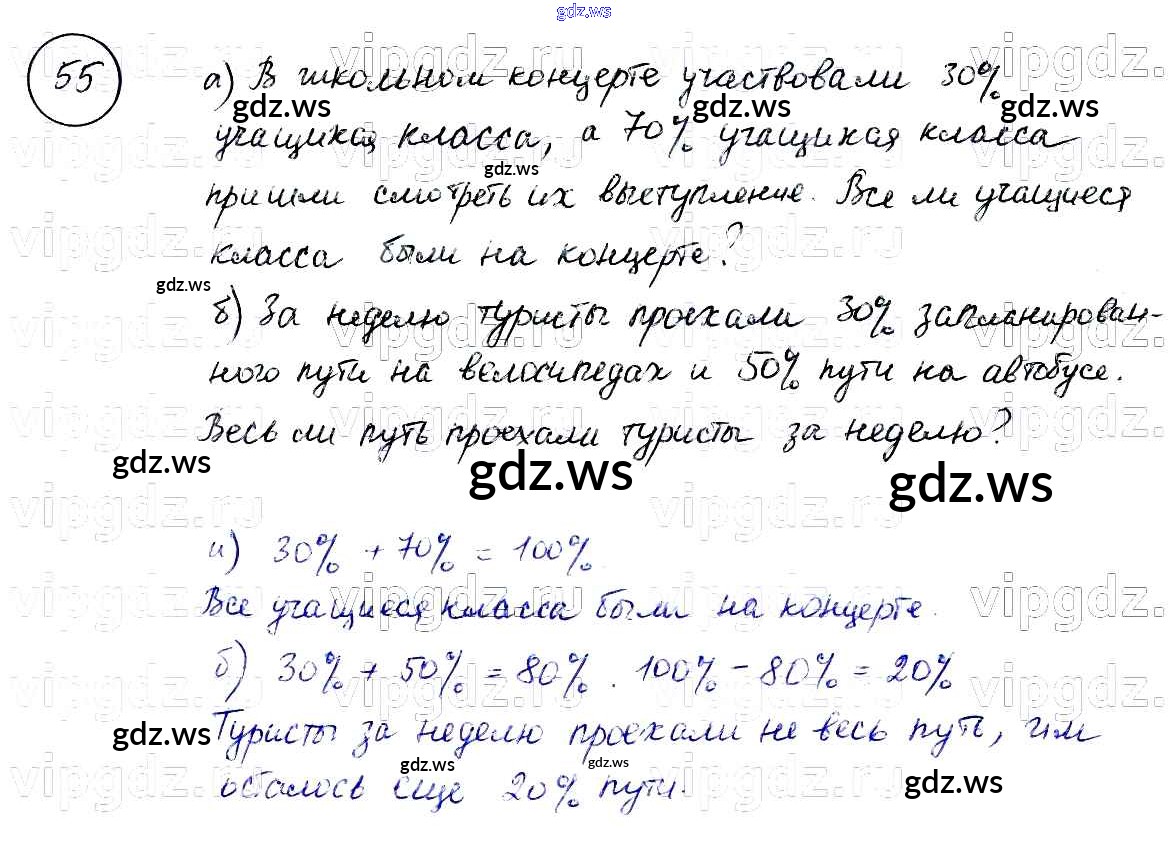 gdz.ws
55
а) В школьном концерте участвовали 30%
учащихся класса, а 70% учащихся класса
пришли смотреть их выступление. Все ли учащиеся
класса были на концерте?
б) За неделю туристы проехали 30% запланирован-
ного пути на велосипедах и 50% пути на автобусе.
Весь ли путь проехали туристы за неделю?
а) 30% + 70% = 100%.
Все учащиеся класса были на концерте.
б) 30% + 50% = 80%. 100% - 80% = 20%
Туристы за неделю проехали не весь путь, им
осталось еще 20% пути.